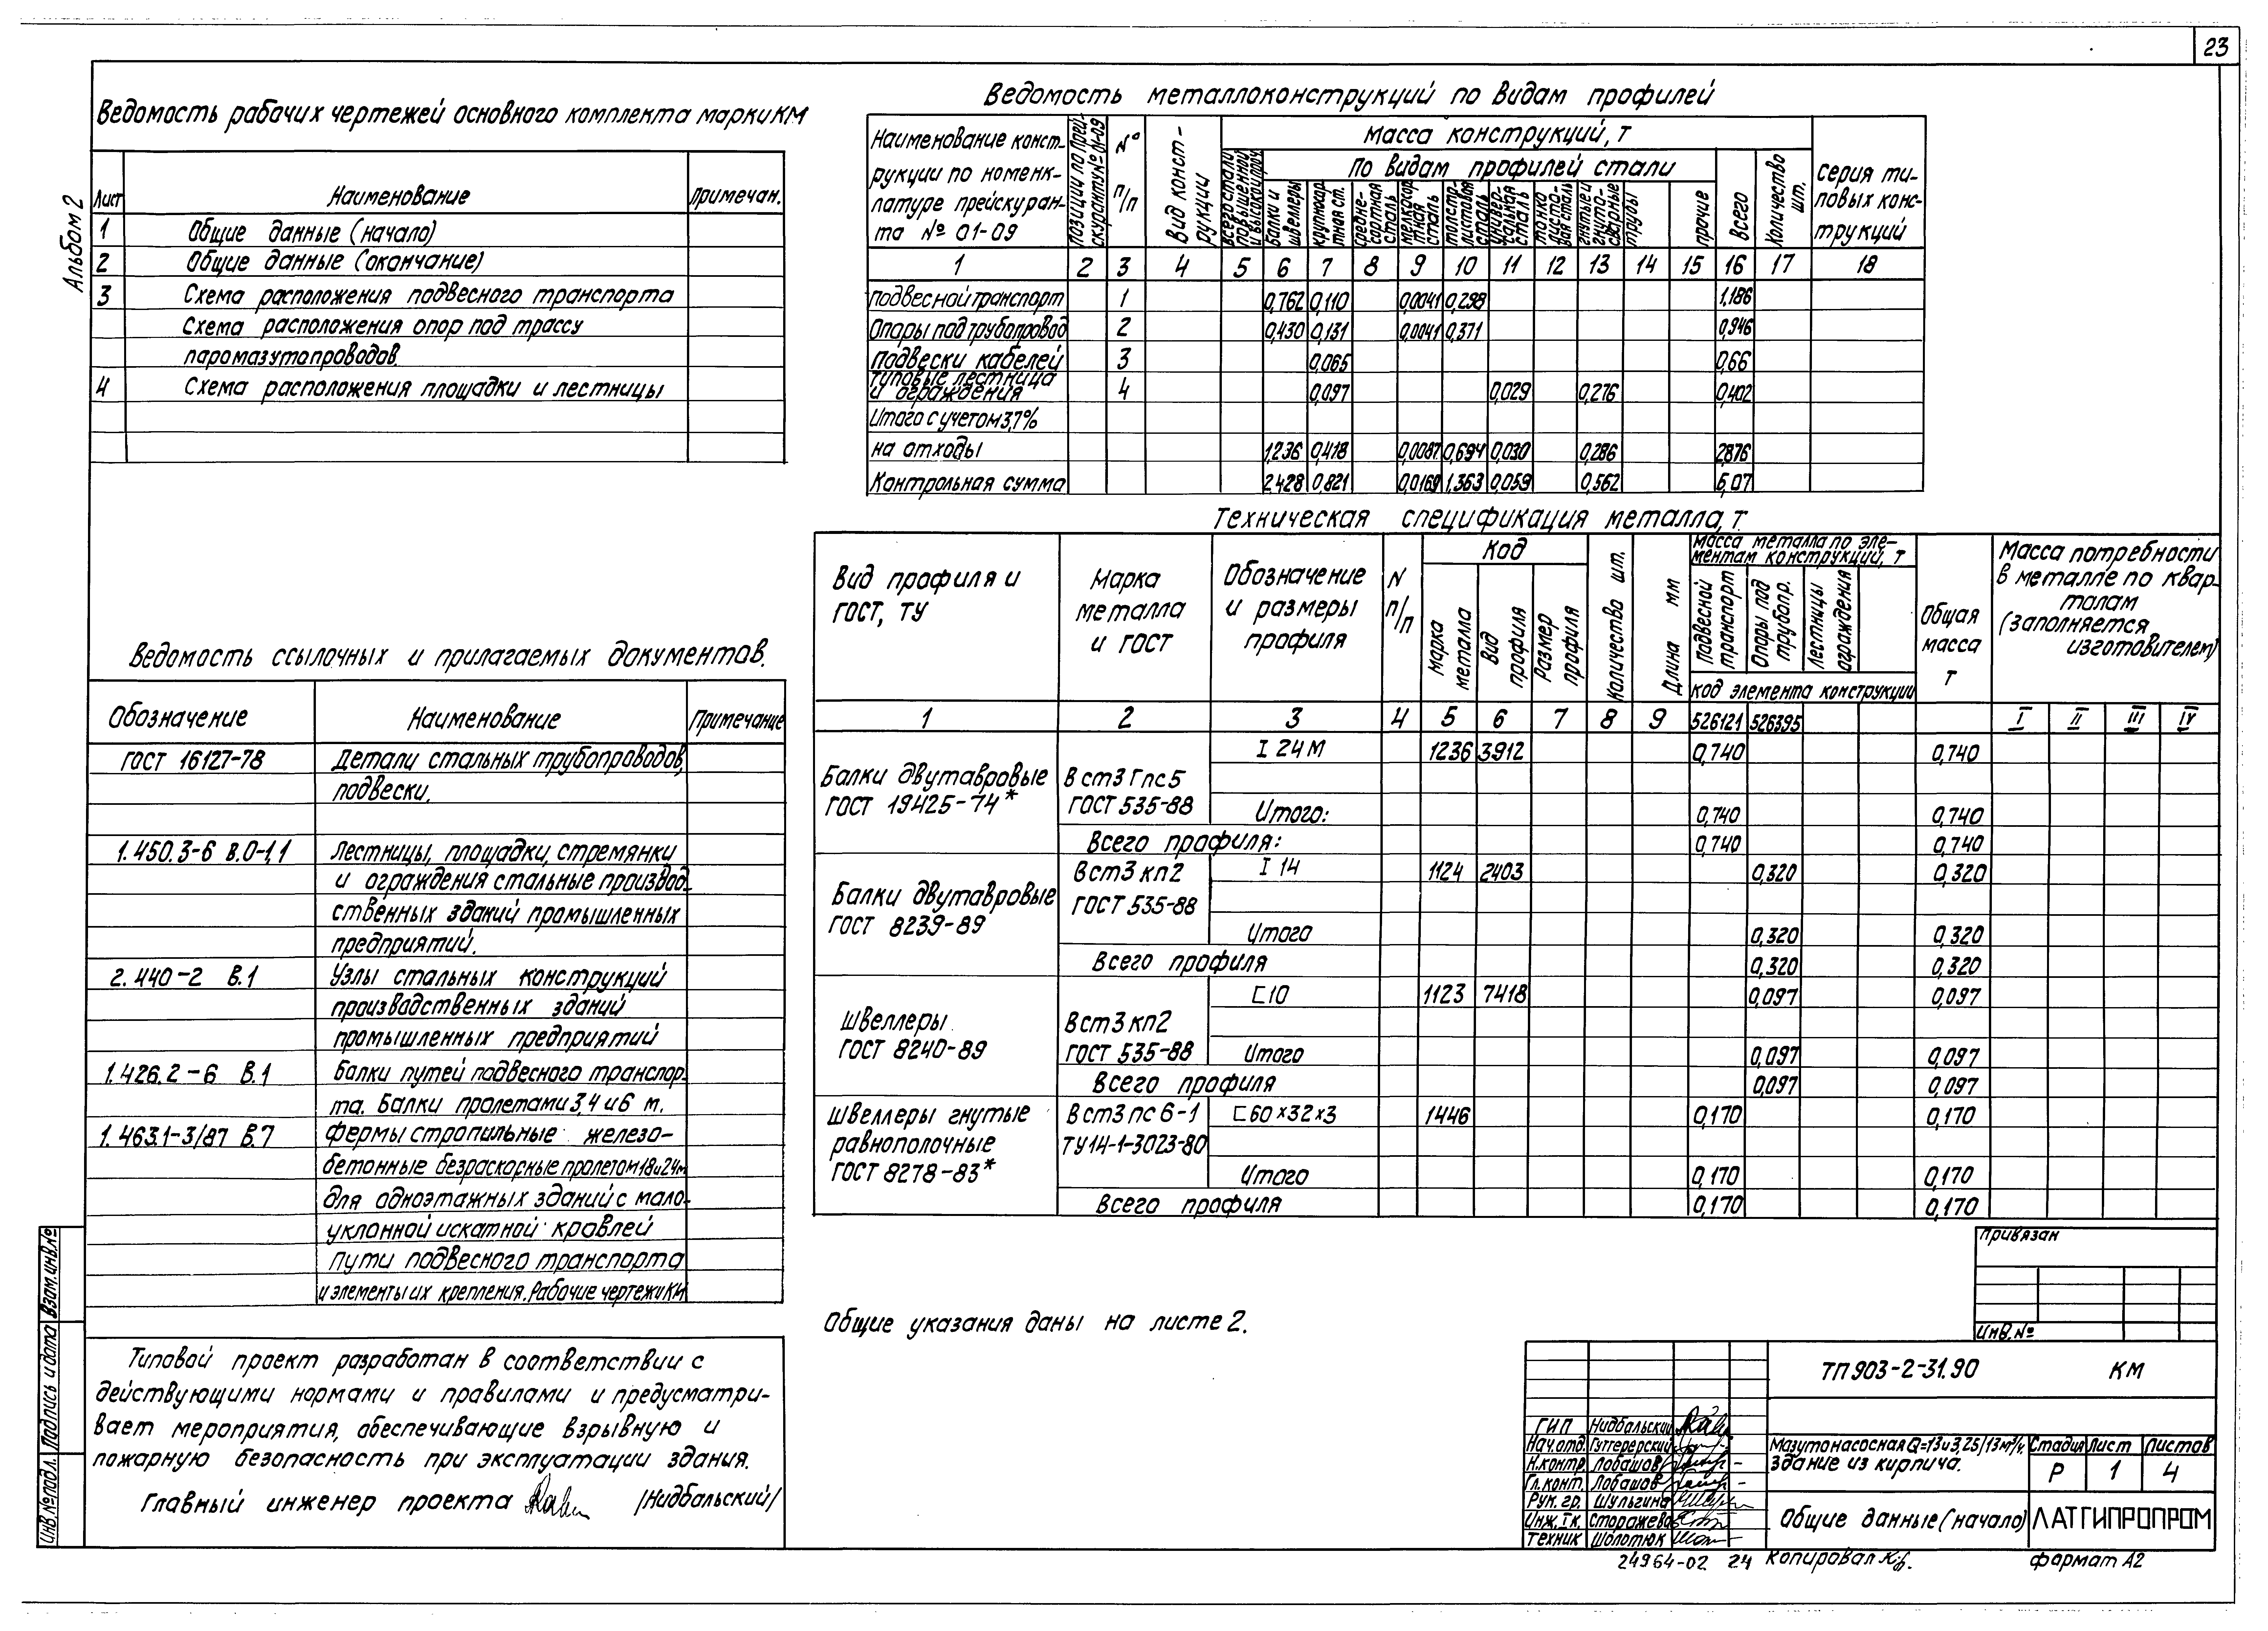 23
Альбом 2
Ведомость рабочих чертежей основного комплекта марки КМ
Лист Наименование Примечан.
1 Общие данные (начало)
2 Общие данные (окончание)
3 Схема расположения подвесного транспорта
Схема расположения опор под трассу
паромазутопроводов.
4 Схема расположения площадки и лестницы
Ведомость ссылочных и прилагаемых документов.
Обозначение Наименование Примечание
ГОСТ 16127-78 Детали стальных трубопроводов,
подвески.
1.450.3-6 В.0-1,1 Лестницы, площадки, стремянки
и ограждения стальные производ-
ственных зданий промышленных
предприятий.
2.440-2 В.1 Узлы стальных конструкций
производственных зданий
промышленных предприятий
1.426.2-6 В.1 Балки путей подвесного транспор-
та. Балки пролетами 3,4 и 6 м.
1.463.1-3/87 В.7 Фермы стропильные железо-
бетонные безраскорные пролетом 18 и 24м
для одноэтажных зданий с мало-
уклонной и скатной кровлей
Пути подвесного транспорта
и элементы их крепления. Рабочие чертежи КМ
Типовой проект разработан в соответствии с
действующими нормами и правилами и предусматри-
вает мероприятия, обеспечивающие взрывную и
пожарную безопасность при эксплуатации здания.
Главный инженер проекта /Нидбальский/
Ведомость металлоконструкций по видам профилей
Наименование конст-
рукции по номенк-
латуре прейскуран-
та № 01-09
Позиции по прей-
скуранту № 01-09
№ п/п
Вид конст-
рукции
Масса конструкций, т
По видам профилей стали
Всего стали повышенной и высокой проч.
Балки и швеллеры
Крупносор-
тная ст.
Средне-
сортная сталь
Мелкосор-
тная сталь
Толстолистовая сталь
Универ-
сальная сталь
Тонколистовая сталь
Гнутые и гнутосварные
Трубы
Прочие
Всего
Количество шт.
Серия ти-
повых конс-
трукций
1 2 3 4 5 6 7 8 9 10 11 12 13 14 15 16 17 18
Подвесной транспорт 1 0,762 0,110 0,0041 0,298 1,186
Опоры под трубопровод 2 0,430 0,131 0,0041 0,371 0,946
Подвески кабелей 3 0,065 0,66
Типовые лестница
и ограждения 4 0,097 0,029 0,276 0,402
Итого с учетом 3,7%
на отходы 1,236 0,418 0,0087 0,694 0,030 0,286 2,876
Контрольная сумма 2,428 0,821 0,0169 1,363 0,059 0,562 6,07
Техническая спецификация металла, т
Вид профиля и
ГОСТ, ТУ
Марка
металла
и ГОСТ
Обозначение
и размеры
профиля
N п/п
Код
Марка металла
Вид профиля
Размер профиля
Количество шт.
Длина мм
Масса металла по эле-
ментам конструкций, т
Подвесной транспорт
Опоры под трубопр.
Лестницы ограждения
Код элемента конструкции
Общая
масса
т
Масса потребности
в металле по квар-
талам
(заполняется
изготовителем)
1 2 3 4 5 6 7 8 9 526121 526395 I II III IV
Балки двутавровые
ГОСТ 19425-74*
Вст3Гпс5
ГОСТ 535-88
I 24М 1236 3912 0,740 0,740
Итого: 0,740 0,740
Всего профиля: 0,740 0,740
Балки двутавровые
ГОСТ 8239-89
Вст3кп2
ГОСТ 535-88
I 14 1124 2403 0,320 0,320
Итого 0,320 0,320
Всего профиля 0,320 0,320
Швеллеры
ГОСТ 8240-89
Вст3кп2
ГОСТ 535-88
[10 1123 7418 0,097 0,097
Итого 0,097 0,097
Всего профиля 0,097 0,097
Швеллеры гнутые
равнополочные
ГОСТ 8278-83*
Вст3пс6-1
ТУ14-1-3023-80
[60×32×3 1446 0,170 0,170
Итого 0,170 0,170
Всего профиля 0,170 0,170
Общие указания даны на листе 2.
Привязан
Инв.№
ТП 903-2-31.90 КМ
ГИП Нидбальский
Нач.отд. Гуттерерский
Н.контр. Лобашов
Гл.конт. Лобашов
Рук. гр. Шульгина
Инж. I к. Сторажева
Техник Шолотюк
Мазутонасосная Q=13 и 3,25/13м³/ч.
Здание из кирпича.
Стадия Лист Листов
Р 1 4
Общие данные (начало)
ЛАТГИПРОПРОМ
24964-02 24 Копировал
Формат А2
Взам.инв.№
Подпись и дата
Инв.№ подл.